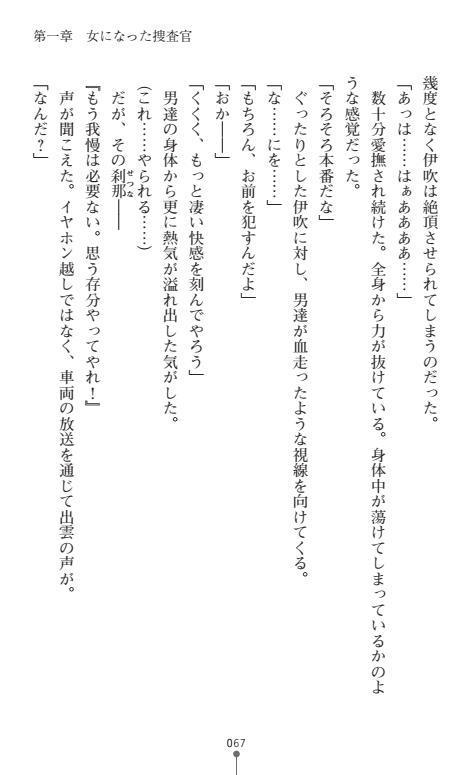 第一章　女になった捜査官
幾度となく伊吹は絶頂させられてしまうのだった。
「あっは……はぁああああ……」
数十分愛撫され続けた。全身から力が抜けている。身体中が蕩けてしまっているかのよ
うな感覚だった。
「そろそろ本番だな」
ぐったりとした伊吹に対し、男達が血走ったような視線を向けてくる。
「な……にを……」
「もちろん、お前を犯すんだよ」
「おか――」
「くくく、もっと凄い快感を刻んでやろう」
男達の身体から更に熱気が溢れ出した気がした。
（これ……やられる……）
だが、その刹那――
せつな
『もう我慢は必要ない。思う存分やってやれ！』
声が聞こえた。イヤホン越しではなく、車両の放送を通じて出雲の声が。
「なんだ？」
067